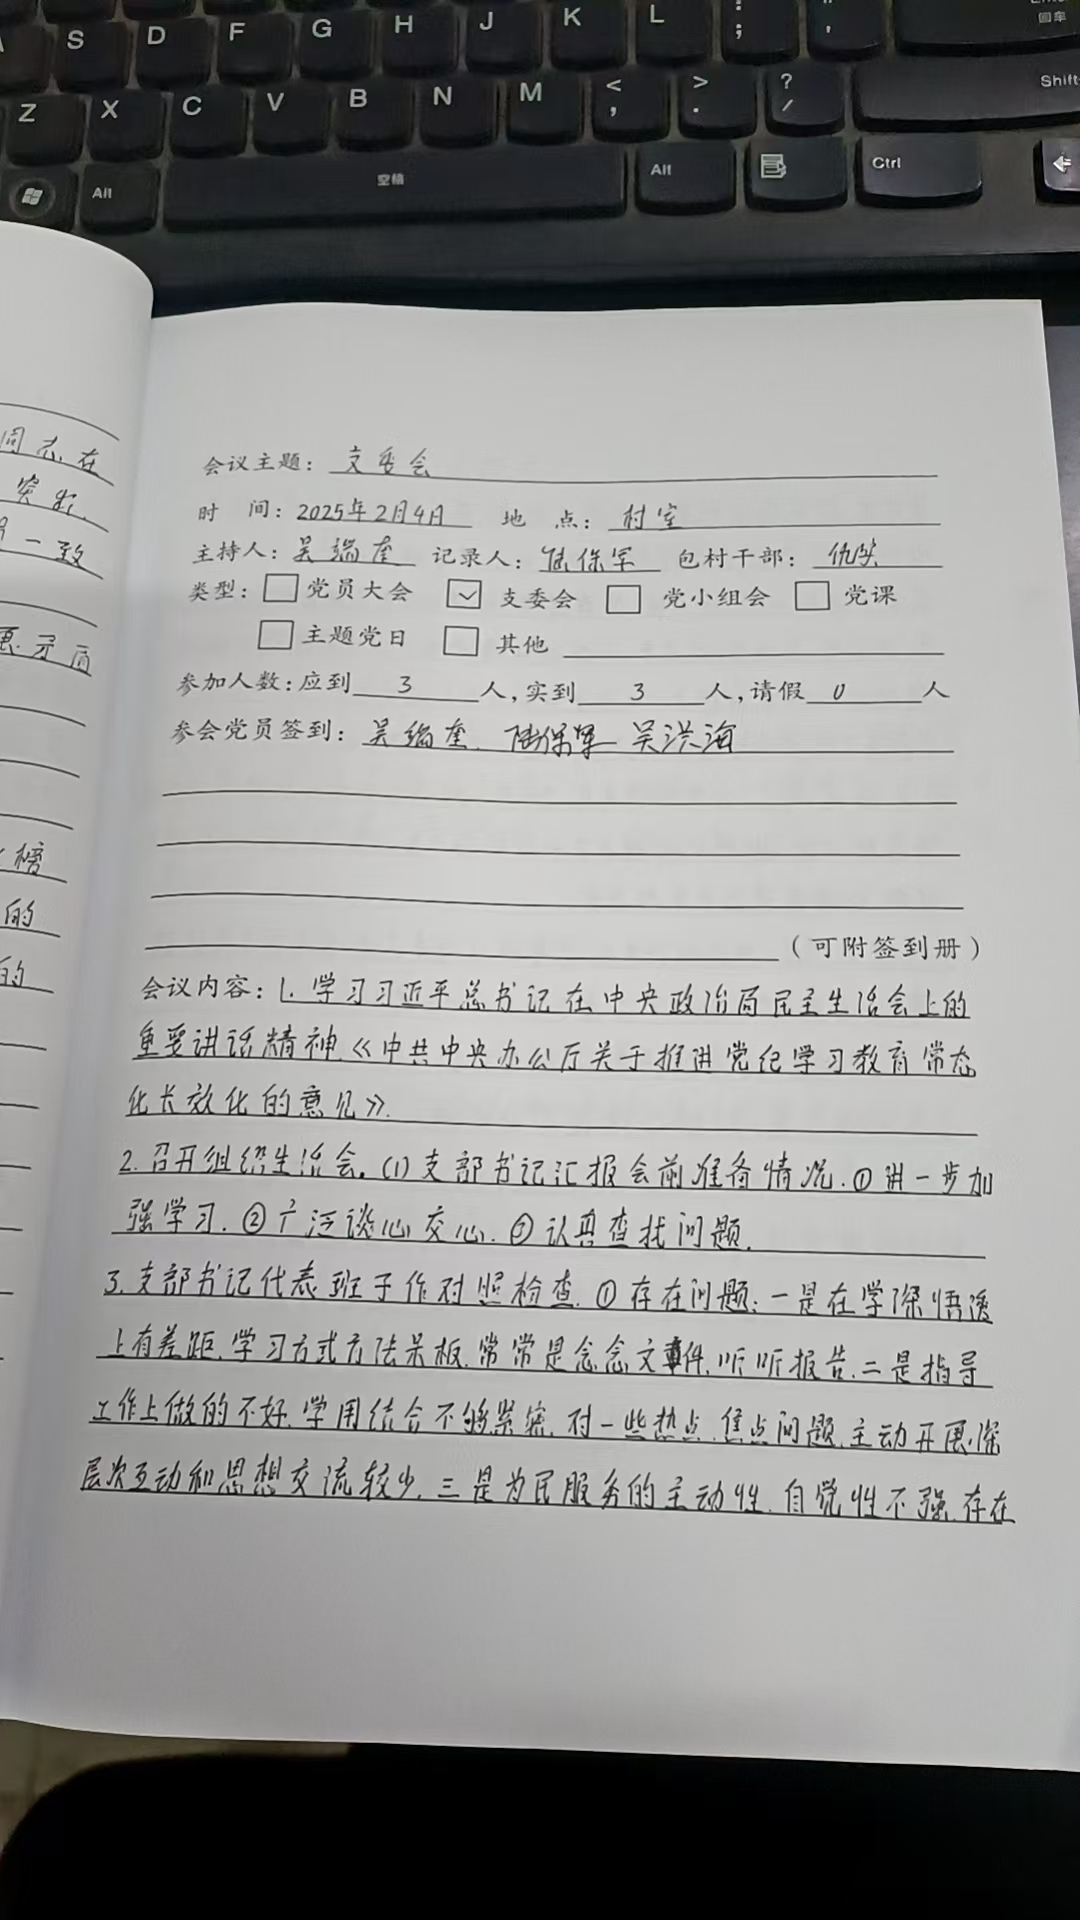 S D F G H J K L : ; " ' Enter 回车
Z X C V B N M < , > . ? / Shift
Alt 空格 Alt Ctrl
同志在
突出,
一致
矛盾
榜
的
的
会议主题: 支委会
时 间: 2025年2月4日 地 点: 村室
主持人: 吴瑞奎 记录人: 陆保军 包村干部: 仇实
类型: □ 党员大会 ☑ 支委会 □ 党小组会 □ 党课
□ 主题党日 □ 其他
参加人数: 应到 3 人, 实到 3 人, 请假 0 人
参会党员签到: 吴瑞奎. 陆保军 吴洪海
(可附签到册)
会议内容: 1. 学习习近平总书记在中央政治局民主生活会上的
重要讲话精神《中共中央办公厅关于推进党纪学习教育常态
化长效化的意见》.
2. 召开组织生活会. (1) 支部书记汇报会前准备情况. ① 进一步加
强学习. ② 广泛谈心交心. ③ 认真查找问题.
3. 支部书记代表班子作对照检查. ① 存在问题: 一是在学深悟透
上有差距. 学习方式方法呆板. 常常是念念文件. 听听报告. 二是指导
工作上做的不好. 学用结合不够紧密. 对一些热点. 焦点问题. 主动开展深
层次互动和思想交流较少. 三是为民服务的主动性. 自觉性不强. 存在